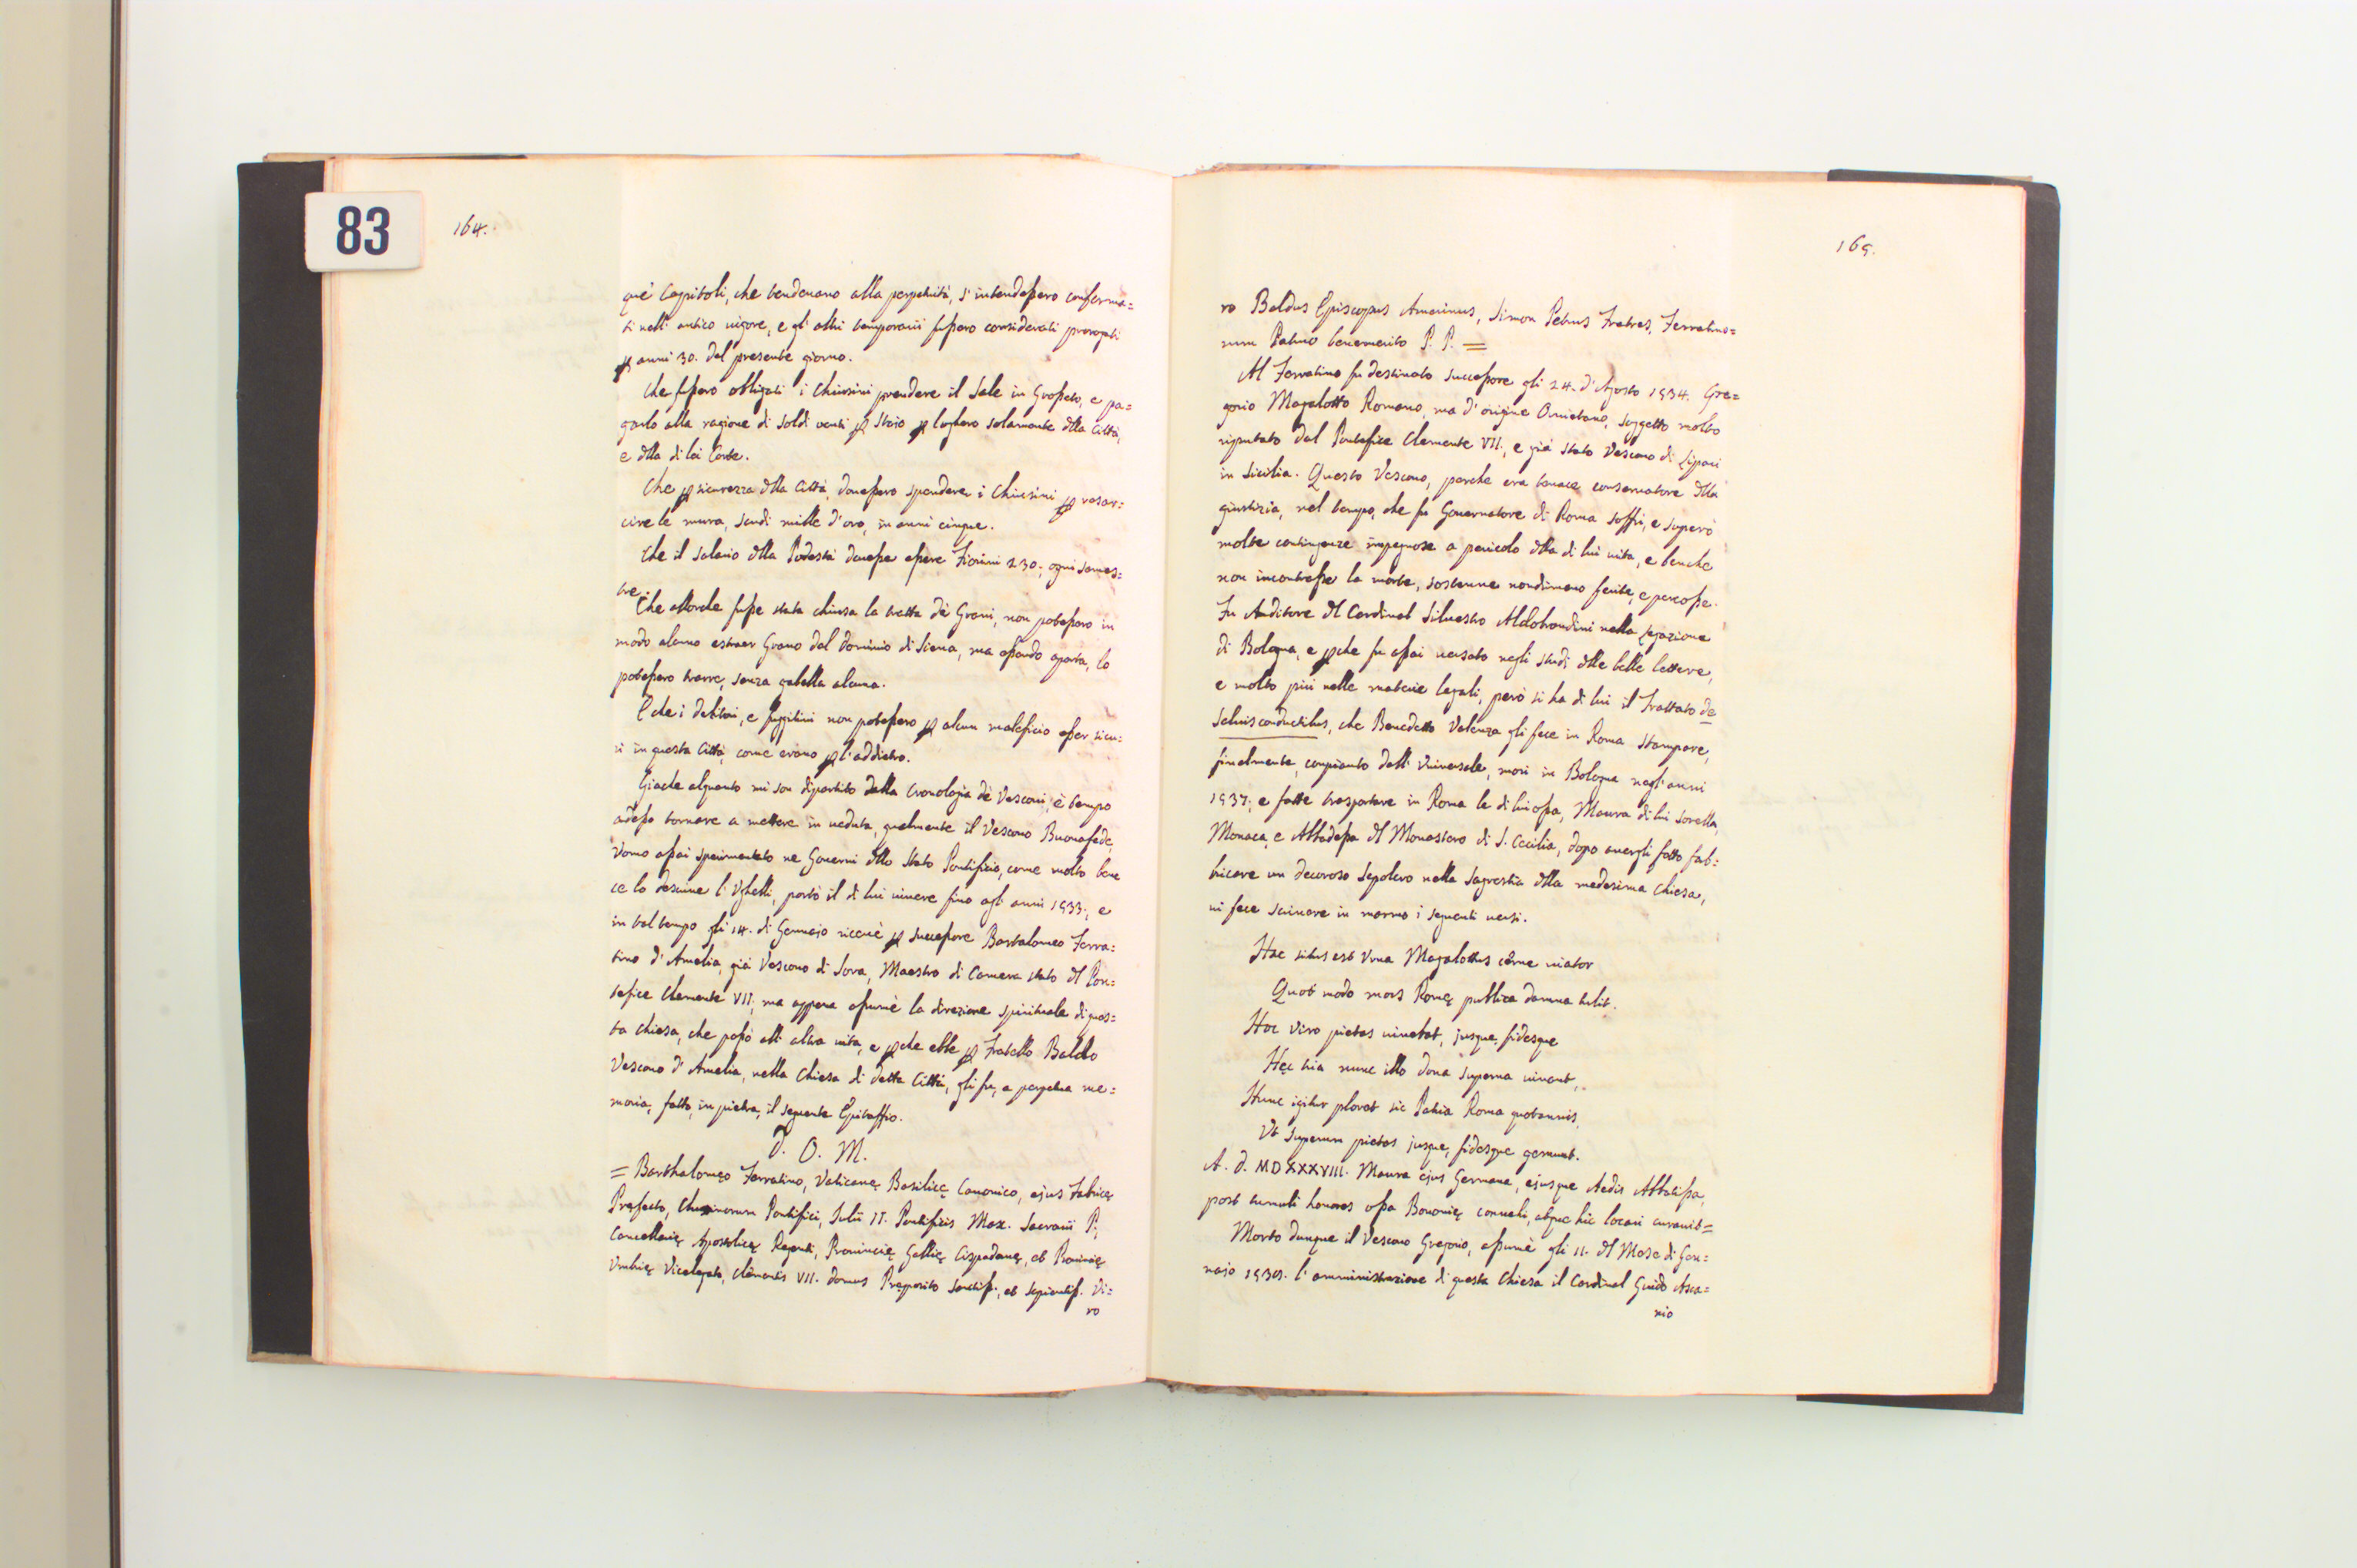 83
164.
que' Capitoli, che tendevano alla perpetuità, s' intendessero conferma=
ti nell' antico vigore, e gl' altri temporanii fussero considerati prorogati
p anni 30. dal presente giorno.
Che fussero obbligati i Chiusini prendere il Sale in Grosseto, e pa=
garlo alla ragione di soldi venti p Staio p loghero solamente dlla Città,
e dlla di lei Corte.
Che p sicurezza dlla Città, dovessero spendere i Chiusini p resar=
cire le mura, scudi mille d' oro, in anni cinque.
Che il salario dlla Podestà dovesse essere Fiorini 230; ogni semes=
tre.
Che allorche fusse stata chiusa la tratta de' Grani, non potessero in
modo alcuno estraer Grano dal Dominio di Siena, ma essendo aperta, lo
potessero trarre, senza gabella alcuna.
E che i debitori, e fuggitivi non potessero p alcun maleficio esser sicu=
ri in questa Città, come erano p l' addietro.
Giache alquanto mi son dipartito dalla Cronologia de' Vescovi, è tempo
adesso tornare a mettere in veduta, qualmente il Vescovo Buonafede,
Uomo assai sperimentato ne Governi dllo Stato Pontificio, come molto bene
ce lo descrive l' Ughelli, portò il di lui vivere fino agl' anni 1533; e
in tal tempo gli 14. di Gennajo riceuè p successore Bartolomeo Ferra=
tino d' Amelia, già Vescovo di Sora, Maestro di Camera stato dl Pon=
tefice Clemente VII; ma appena assumè la direzione spirituale di ques=
ta Chiesa, che passò all' altra vita, e pche ebbe p Fratello Baldo
Vescovo d' Amelia, nella Chiesa di detta Città, gli fu, a perpetua me=
moria, fatto, in pietra, il seguente Epitaffio.
D. O. M.
= Barthalomęo Ferratino, Vaticanę Basilicę Canonico, ejus Fabricę
Prafecto, Clusinorum Pontifici, Julii II. Pontificis Max. Sacrarii P;
Cancellarię Apostolicę Regenti, Provincię Gallię Cispadanę, et Provincię
Umbrię Vicelegato, Clementis VII. domus Pręposito Sanctiss., et sapientiss. Vi=
ro
165.
ro Baldus Episcopus Amerinus, Simon Petrus Fratres, Ferratino=
rum Patruo benemerito P. P. =
Al Ferratino fu destinato successore gli 24. d' Agosto 1534. Gre=
gorio Magalotto Romano, ma d' origine Orvietano, soggetto molto
riputato dal Pontefice Clemente VII., e già stato Vescovo di Lipari
in Sicilia. Questo Vescovo, perche era tenace conservatore dlla
giustizia, nel tempo, che fu Governatore di Roma soffri, e superò
molte contingenze impegnose a pericolo dlla di lui vita, e benche
non incontrasse la morte, sostenne nondimeno ferite, e percosse.
Fu Auditore dl Cardinal Silvestro Aldobrandini nella Legazione
di Bologna, e pche fu assai versato negli studi dlle belle lettere,
e molto più nelle materie legali, però si ha di lui il Trattato de
Salvisconductibus, che Benedetto Valenza gli fece in Roma stampare,
finalmente, compianto dall' Universale, morì in Bologna negl' anni
1537; e fatte trasportare in Roma le di lui ossa, Maura di lui sorella,
Monaca, e Abbadessa dl Monastero di S. Cecilia, dopo avergli fatto fab=
bricare un decoroso Sepolcro nella Sagrestia dlla medesima Chiesa,
vi fece scrivere in marmo i seguenti versi.
Hac situs est Vrna Magalottus cerne viator
Quot modo mors Romę publica damna tulit.
Hoc vivo pietas vivebat, jusque, fidesque
Hęc tria nunc illo dona superna vivunt,
Hunc igitur plorat sic Patria Roma quotannis,
Ut Superum pietas jusque, fidesque gemunt.
A. D. MDXXXVIII. Maura ejus Germana, ejusque Aedis Abbatissa,
post tumuli honores ossa Bononię convehi, atque hic locari curavit=
Morto dunque il Vescovo Gregorio, assumè gli 11. dl Mese di Gen=
najo 1538. l' amministrazione di questa Chiesa il Cardinal Guido Asca=
nio